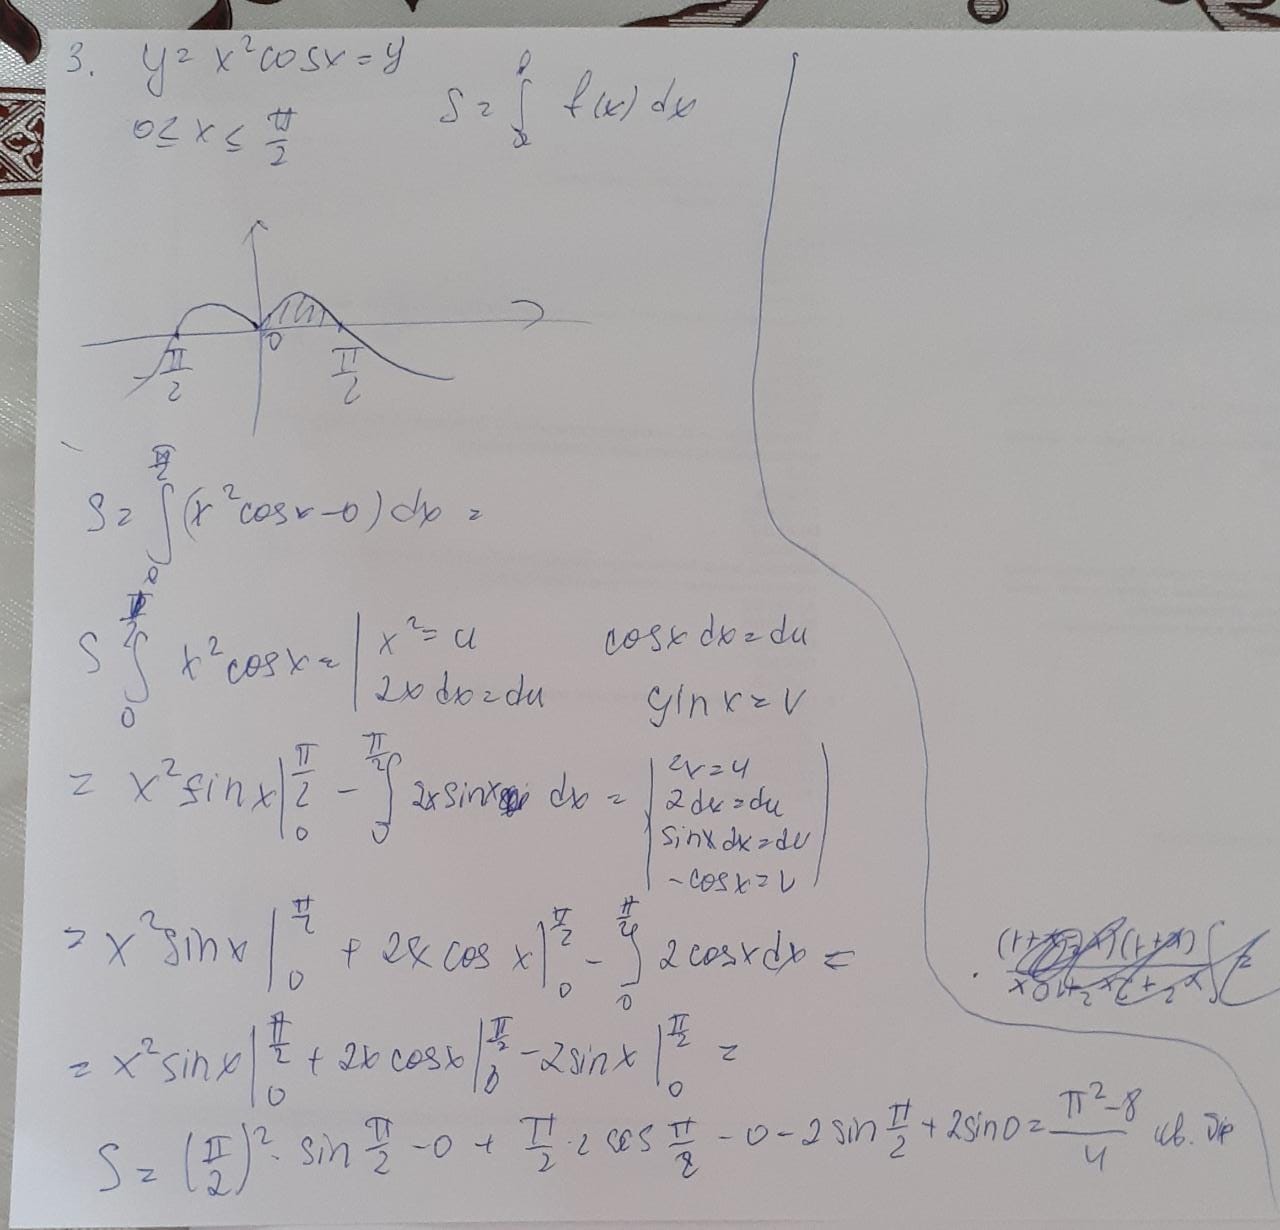 3. y = x² cos x = y
0 ≤ x ≤ π/2
S = ∫ f(x) dx
0
π/2
π/2
S = ∫₀^(π/2) (x² cos x - 0) dx =
S ∫₀^(π/2) x² cos x = | x² = u cos x dx = du
2x dx = du sin x = v
= x² sin x |₀^(π/2) - ∫₀^(π/2) 2x sin x dx = | 2x = u
2 dx = du
sin x dx = dv
- cos x = v |
= x² sin x |₀^(π/2) + 2x cos x |₀^(π/2) - ∫₀^(π/2) 2 cos x dx =
= x² sin x |₀^(π/2) + 2x cos x |₀^(π/2) - 2 sin x |₀^(π/2) =
S = (π/2)² · sin π/2 - 0 + π/2 · 2 cos π/2 - 0 - 2 sin π/2 + 2 sin 0 = (π² - 8)/4 кв. ед